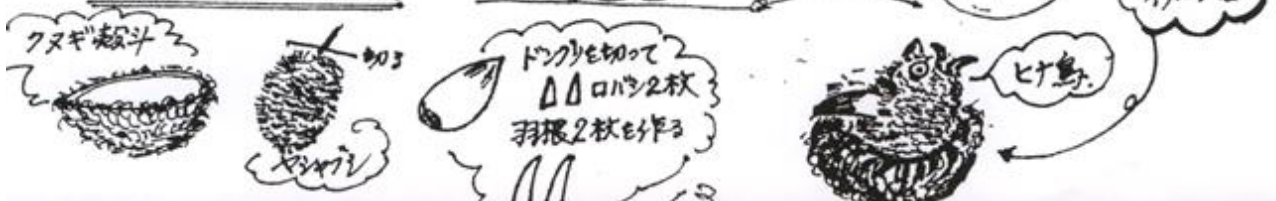 クヌギ殻斗
切る
ヤシャブシ
ドングリを切って
ロバシ2枚
羽根2枚を作る
ヒナ鳥